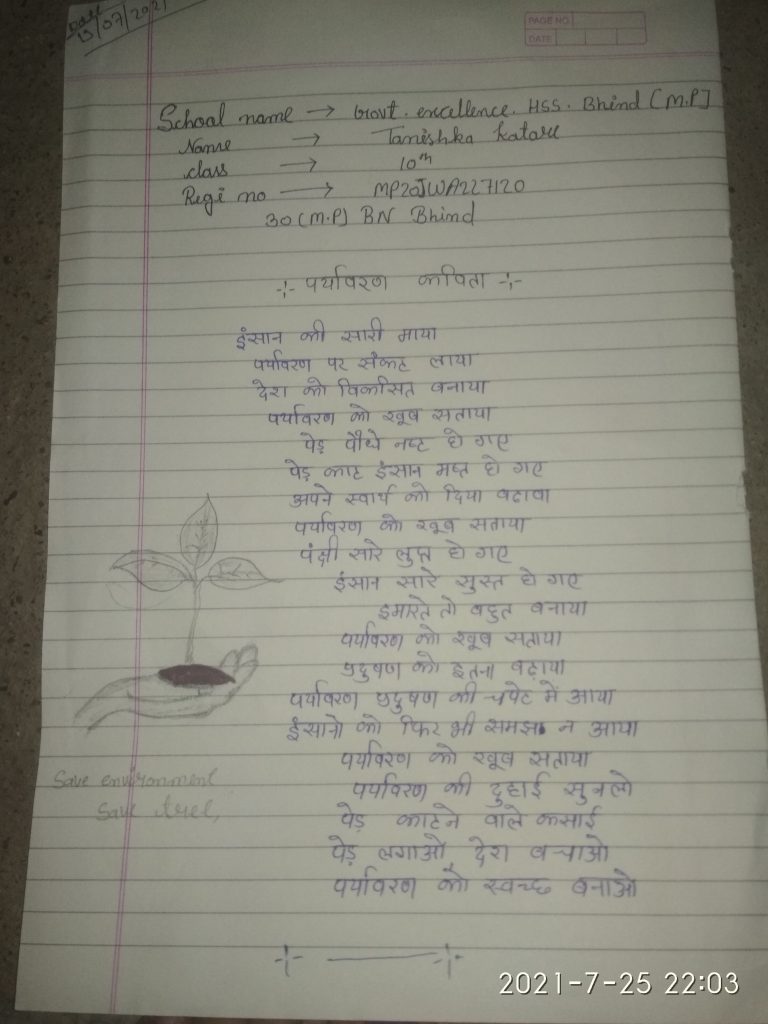 Date
13/07/2021
PAGE NO.
DATE
School name → Govt. excellence. HSS. Bhind [M.P]
Name → Tanishka Katare
class → 10th
Regi no → MP20JWA227120
30 (M.P) BN Bhind
पर्यावरण कविता
इंसान की सारी माया
पर्यावरण पर संकट लाया
देश को विकसित बनाया
पर्यावरण को खूब सताया
पेड़ पौधे नष्ट हो गए
पेड़ काट इंसान मस्त हो गए
अपने स्वार्थ को दिया बढावा
पर्यावरण को खूब सताया
पंक्षी सारे लुप्त हो गए
इंसान सारे सुस्त हो गए
इमारते तो बहुत बनाया
पर्यावरण को खूब सताया
प्रदुषण को इतना बढ़ाया
पर्यावरण प्रदुषण की चपेट मे आया
इंसानो को फिर भी समझ न आया
पर्यावरण को खूब सताया
पर्यावरण की दुहाई सुनलो
पेड़ काटने वाले कसाई
पेड़ लगाओ, देश बचाओ
पर्यावरण को स्वच्छ बनाओ
Save environment
Save tree,
2021-7-25 22:03